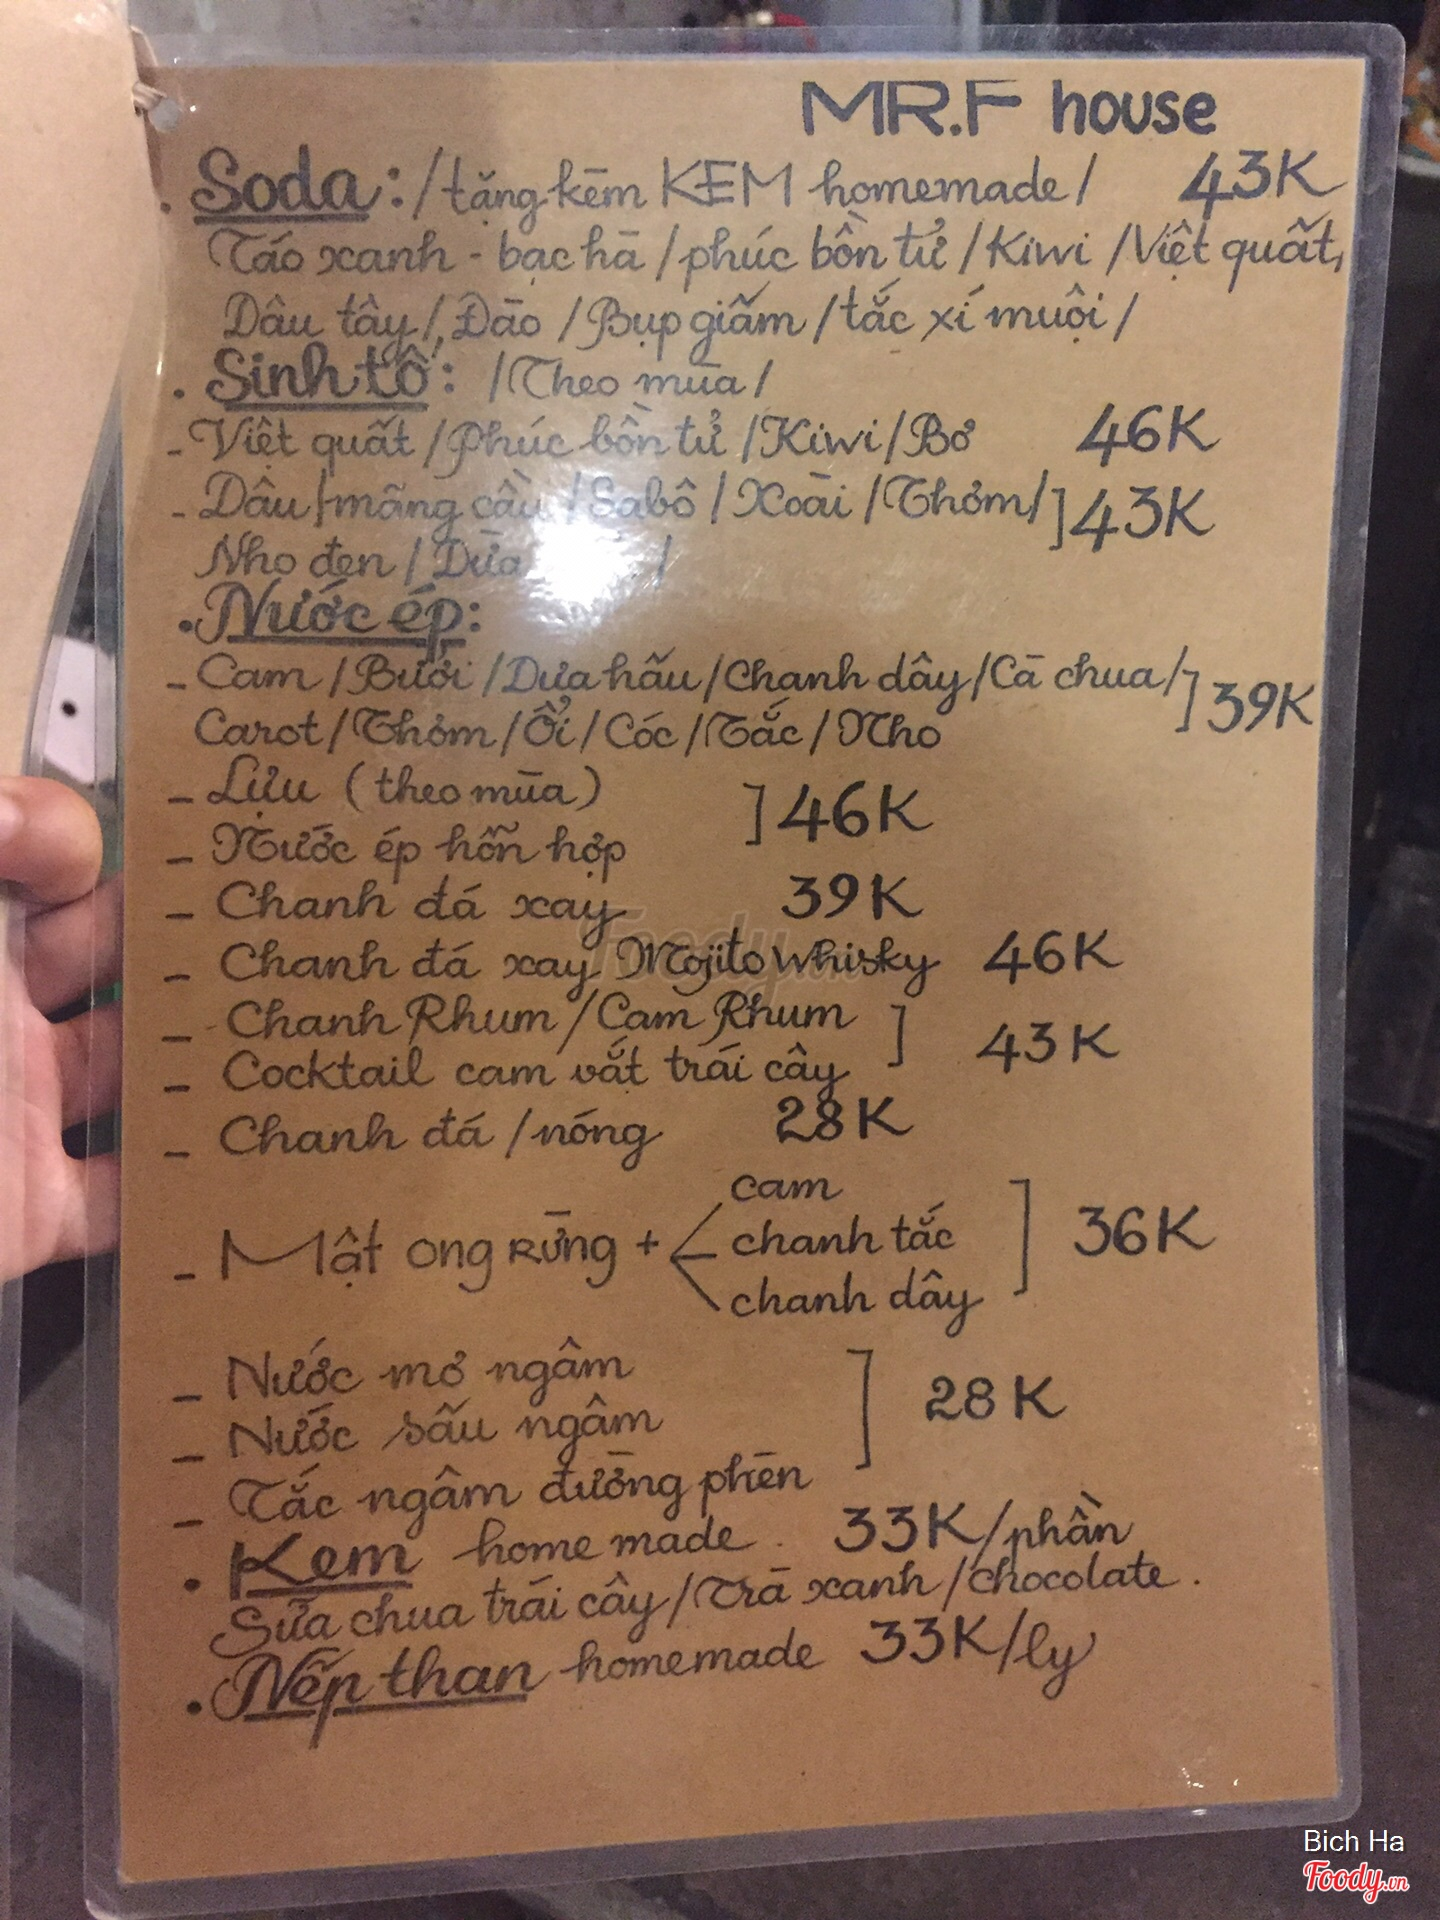 MR.F house
. Soda: /tặng kēm KEM homemade/ 43K
Táo xanh - bạc hà /phúc bồn tử /Kiwi /Việt quất,
Dâu tây/ Đào /Bụp giấm /tắc xí muội /
. Sinh tố: /Theo mùa/
- Việt quất /Phúc bồn tử /Kiwi/Bơ 46K
- Dâu/mãng cầu /Sabô /Xoài /Thơm/ ] 43K
Nho đen / Dừa /
. Nước ép:
- Cam /Bưởi /Dưa hấu /Chanh dây /Cà chua/ ] 39K
Carot /Thơm /Ổi /Cóc /Tắc /Nho
- Lựu (theo mùa) ] 46K
- Nước ép hỗn hợp
- Chanh đá xay 39K
- Chanh đá xay Mojito Whisky 46K
- Chanh Rhum /Cam Rhum ] 43K
- Cocktail cam vắt trái cây
- Chanh đá /nóng 28K
cam
- Mật ong Rừng + chanh tắc ] 36K
chanh dây
- Nước mơ ngâm
- Nước sấu ngâm ] 28K
- Tắc ngâm đường phèn
. Kem home made. 33K/phần
Sữa chua trái cây/Trà xanh /chocolate.
. Nếp than homemade 33K/ly
Foody.vn
Bich Ha
Foody.vn